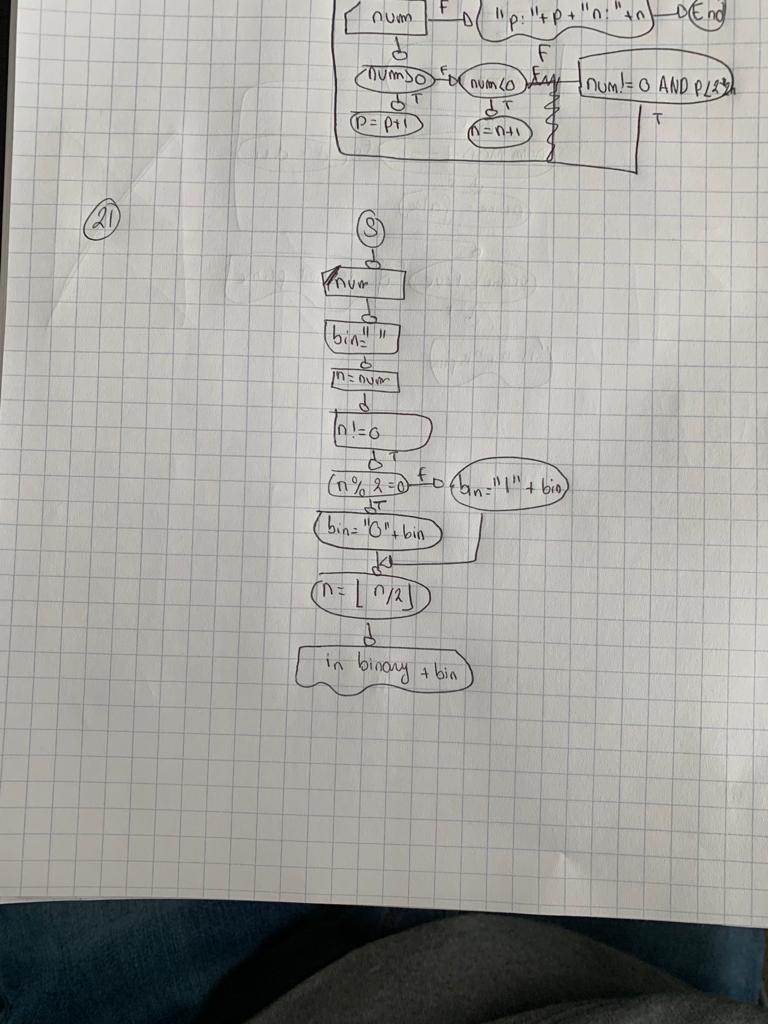 num F "p:"+p+"n:"+n End
F
num>0 F num<0 num!=0 AND p<2*n
T T T
p=p+1 n=n+1
21
S
num
bin=""
n=num
n!=0
T
n%2=0 F bin="1"+bin
T
bin="0"+bin
n=⌊n/2⌋
in binary + bin